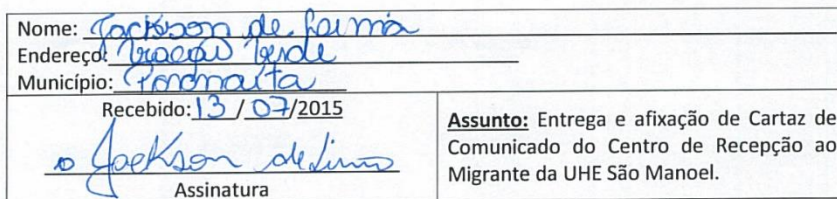 Nome: Jackson de Lima
Endereço: Verde
Município: Paranaíta
Recebido: 13 / 07/2015
Jackson de Lima
Assinatura
Assunto: Entrega e afixação de Cartaz de
Comunicado do Centro de Recepção ao
Migrante da UHE São Manoel.